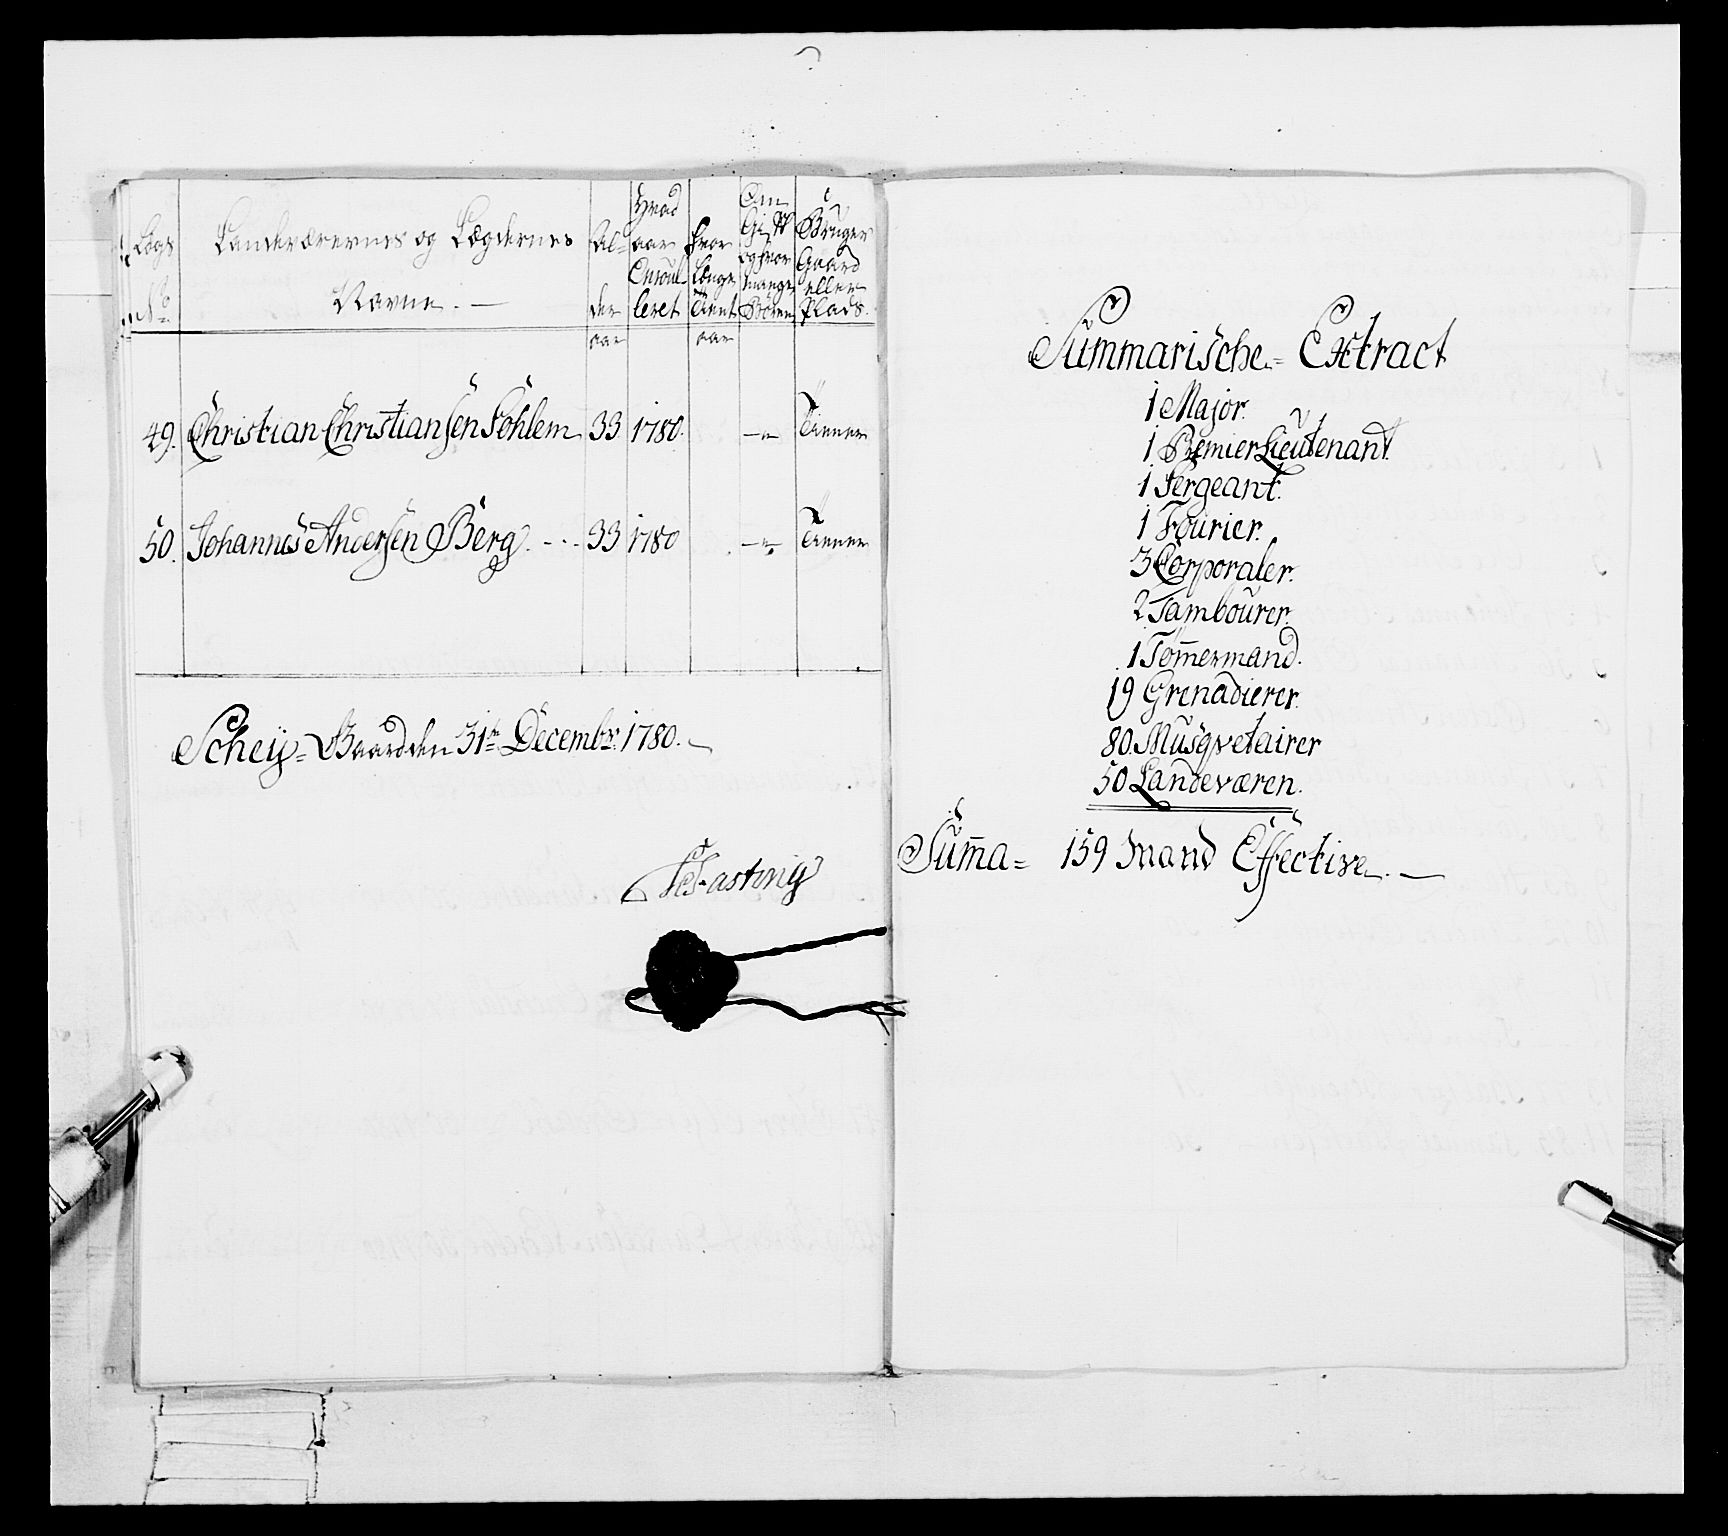 Lægs No.
Landeværernes og Lægdernes
Navne.
Al-
der
aar
Hvad
aar
Enroul
leret
hvor
Længe
Tient
aar
Om
Gift
og hvor
mange
Børen
Bruger
Gaard
eller
Plads.
49. Christian Christiansen Sohlem 33 1780. — Tiener
50. Johannes Andersen Berg. 33 1780 — Tiener
Scheij-Gaard den 31te Decembr. 1780.
Fasting
Summarische-Extract
1 Major.
1 Premier Lieutenant.
1 Sergeant.
1 Fourier.
3 Corporaler.
2 Tambourer.
1 Tømermand.
19 Grenadierer.
80 Musqvetairer
50 Landeværen.
Suma= 159 Mand Effective.